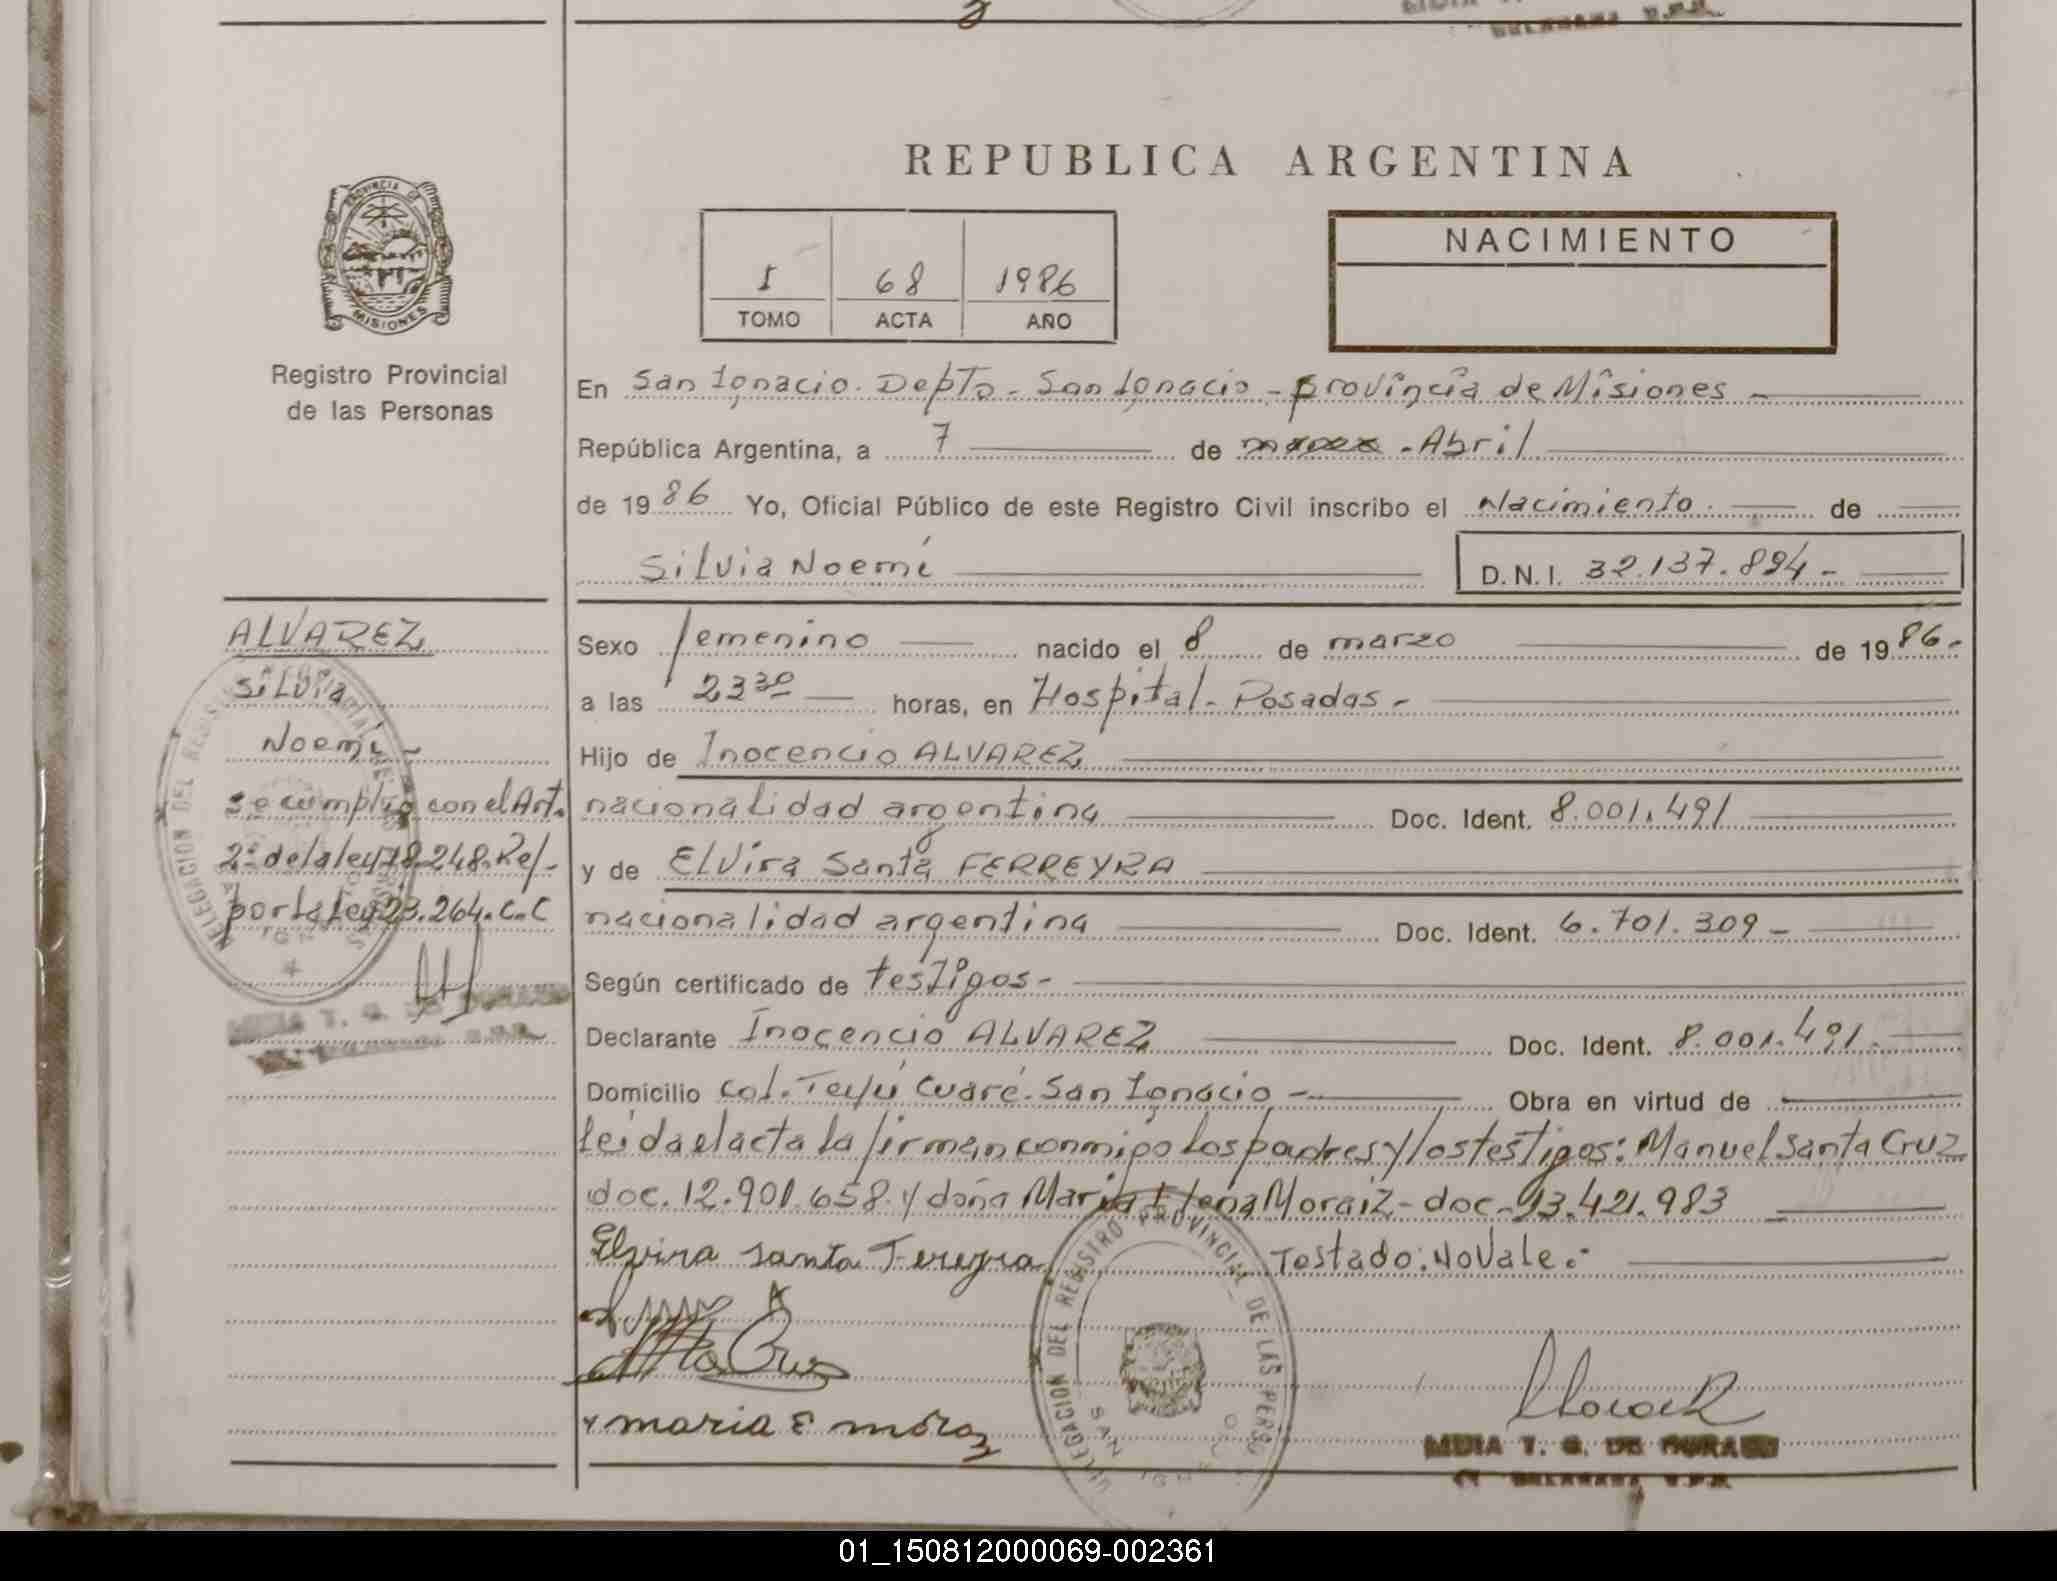 REPUBLICA ARGENTINA
PROVINCIA DE
MISIONES
Registro Provincial
de las Personas
I 68 1986
TOMO ACTA AÑO
NACIMIENTO
En San Ignacio. Depto. San Ignacio - provincia de Misiones -
República Argentina, a 7 de - Abril
de 1986 Yo, Oficial Público de este Registro Civil inscribo el Nacimiento. de
Silvia Noemí D.N.I. 32.137.894-
ALVAREZ
Silvia
Noemí -
Se cumplió con el Art.
2º de la ley 18.248. Ref.
por la Ley 23.264. C.C
Sexo femenino nacido el 8 de marzo de 1986-
a las 23 30 horas, en Hospital - Posadas -
Hijo de Inocencio ALVAREZ
nacionalidad argentina Doc. Ident. 8.001.491
y de Elvira Santa FERREYRA
nacionalidad argentina Doc. Ident. 6.701.309 -
Según certificado de testigos -
Declarante Inocencio ALVAREZ Doc. Ident. 8.001.491.
Domicilio Col. Teyú Cuaré. San Ignacio - Obra en virtud de
leída el acta la firman conmigo los padres y los testigos: Manuel Santa Cruz
doc. 12.901.658. y doña María Elena Moraiz - doc - 93.421.983
Elvira Santa Fereyra Testado: No Vale.-
maria E moraz
DELEGACION DEL REGISTRO PROVINCIAL DE LAS PERS
SAN IGNACIO
01_150812000069-002361